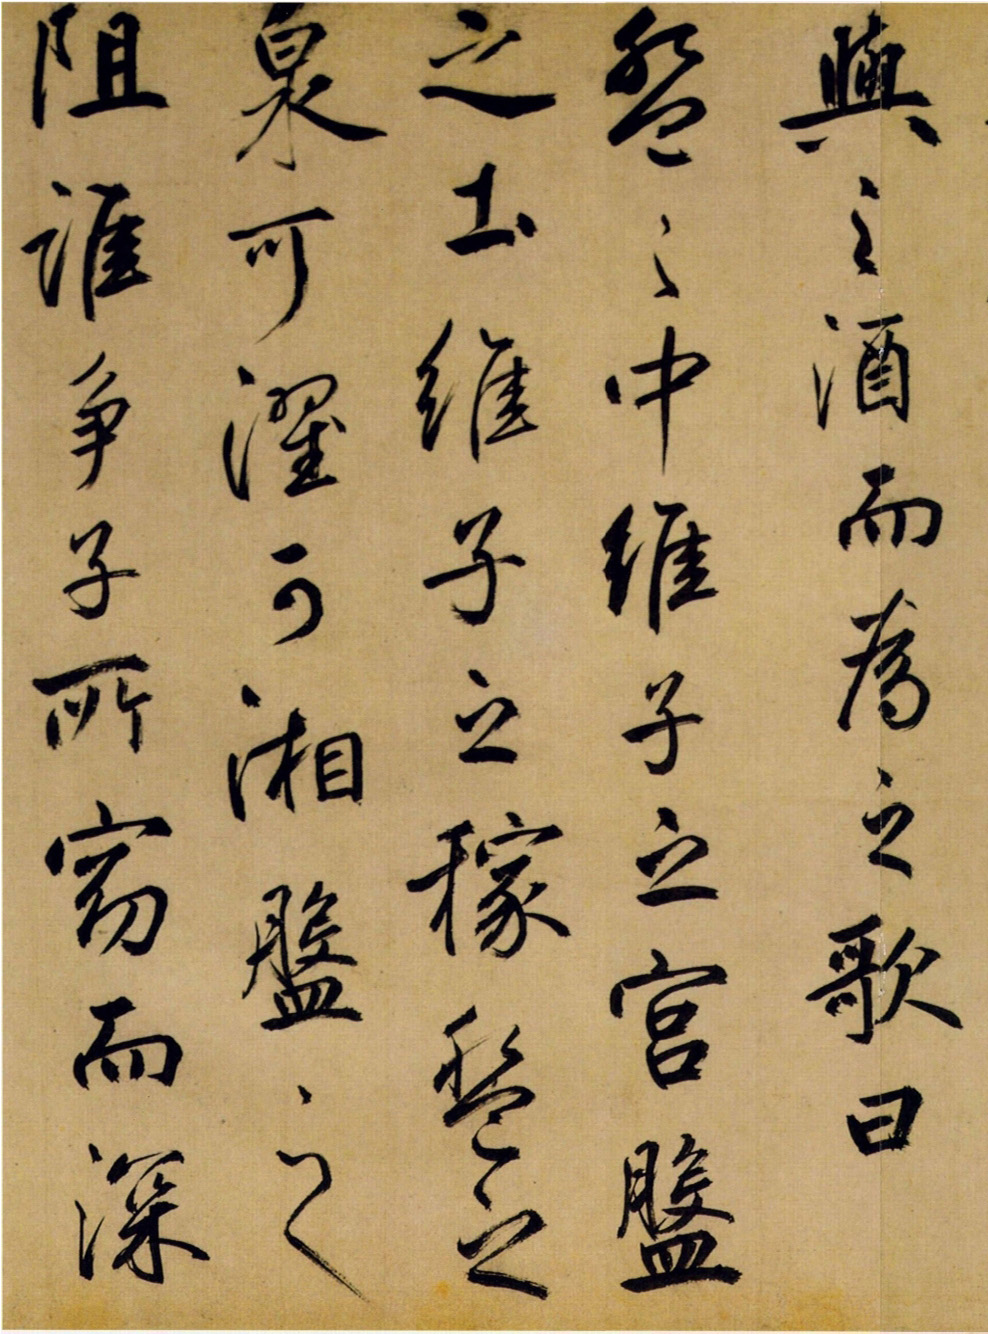 與之酒而為之歌曰
盤之中維子之宮盤
之土維子之稼盤之
泉可濯可湘盤之
阻誰爭子所窈而深